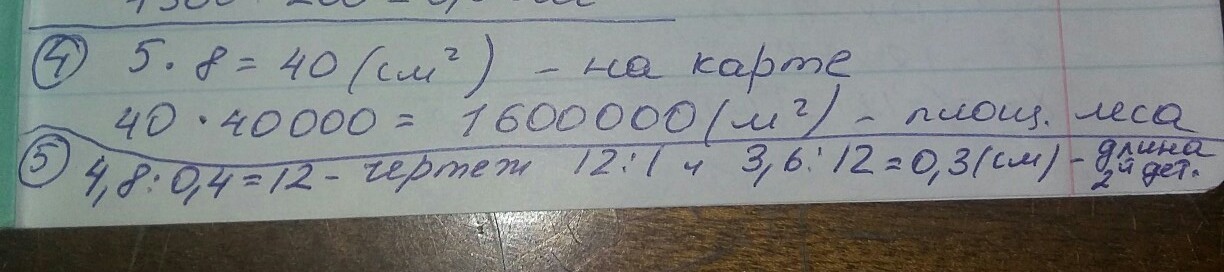 ④ 5 · 8 = 40 (см²) - на карте
40 · 40000 = 1600000 (м²) - площ. леса
⑤ 4,8 : 0,4 = 12 - чертеж 12 : 1 ч 3,6 : 12 = 0,3 (см) - длина
2й дет.